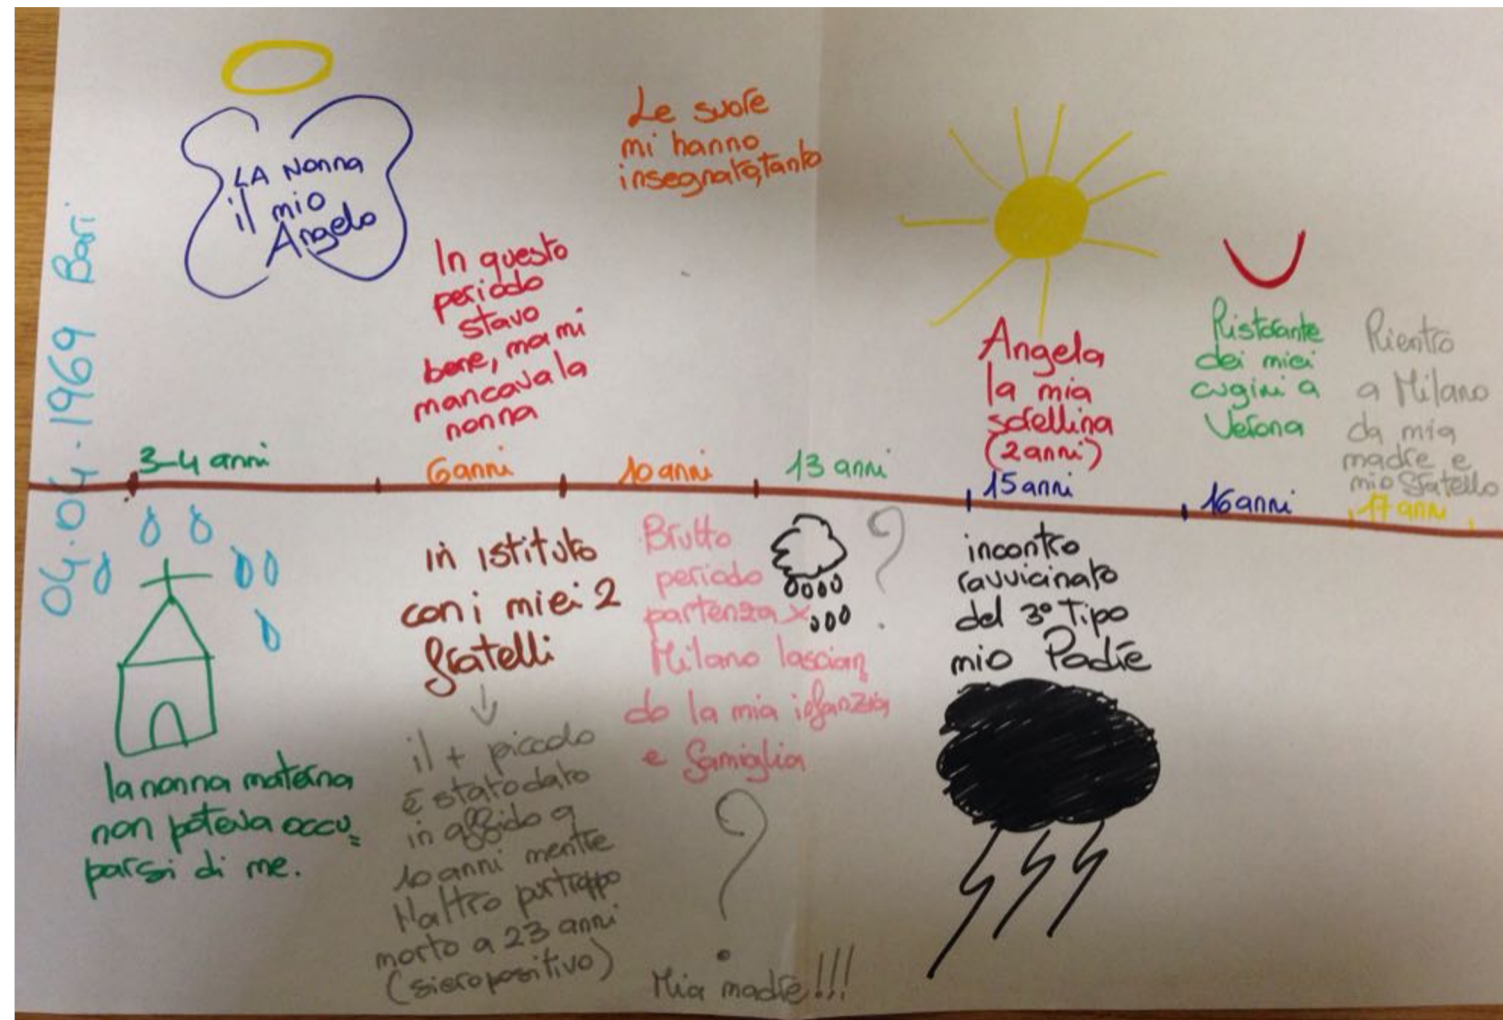 04.04.1969 Bari
LA Nonna
il mio
Angelo
In questo
periodo
stavo
bene, ma mi
mancava la
nonna
Le suore
mi hanno
insegnato, tanto
Angela
la mia
sorellina
(2 anni)
Ristorante
dei miei
cugini a
Verona
Rientro
a Milano
da mia
madre e
mio fratello
3-4 anni
6 anni
10 anni
13 anni
15 anni
16 anni
17 anni
la nonna materna
non poteva occu=
parsi di me.
in istituto
con i miei 2
fratelli
il + piccolo
è stato dato
in affido a
10 anni mentre
l'altro purtroppo
morto a 23 anni
(sieropositivo)
Brutto
periodo
partenza x
Milano lascian
do la mia infanzia
e famiglia
?
?
Mia madre!!!
incontro
ravvicinato
del 3° Tipo
mio Padre